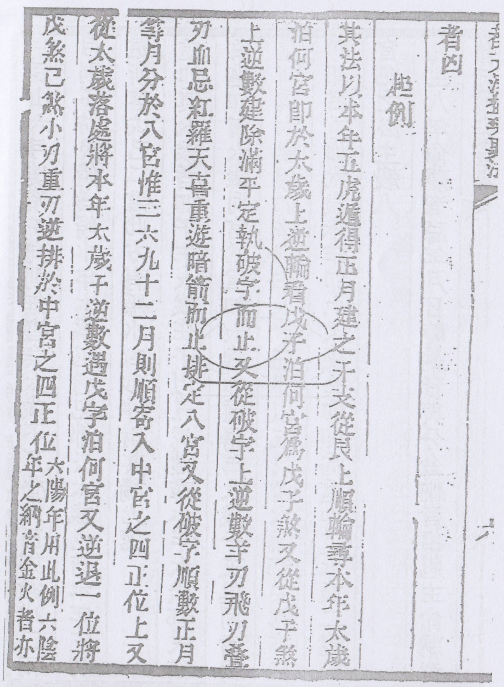 者凶
起例
其法以本年五虎遁得正月建之干支從艮上順輪尋本年太歲
泊何宮即於太歲上逆輪看戊子泊何宮為戊子煞又從戊子煞
上逆數建除滿平定執破字而止又從破字上逆數羊刃飛刃叠
刃血忌紅羅天喜重遊暗箭而止排定八宮又從破字順數正月
等月分於八宮惟三六九十二月則順寄入中宮之四正位上又
從太歲落處將本年太歲子逆數遇戊字泊何宮又逆退一位將
戊煞己煞小刃重刃逆排於中宮之四正位六陽年用此例六陰
年之納音金火者亦
六